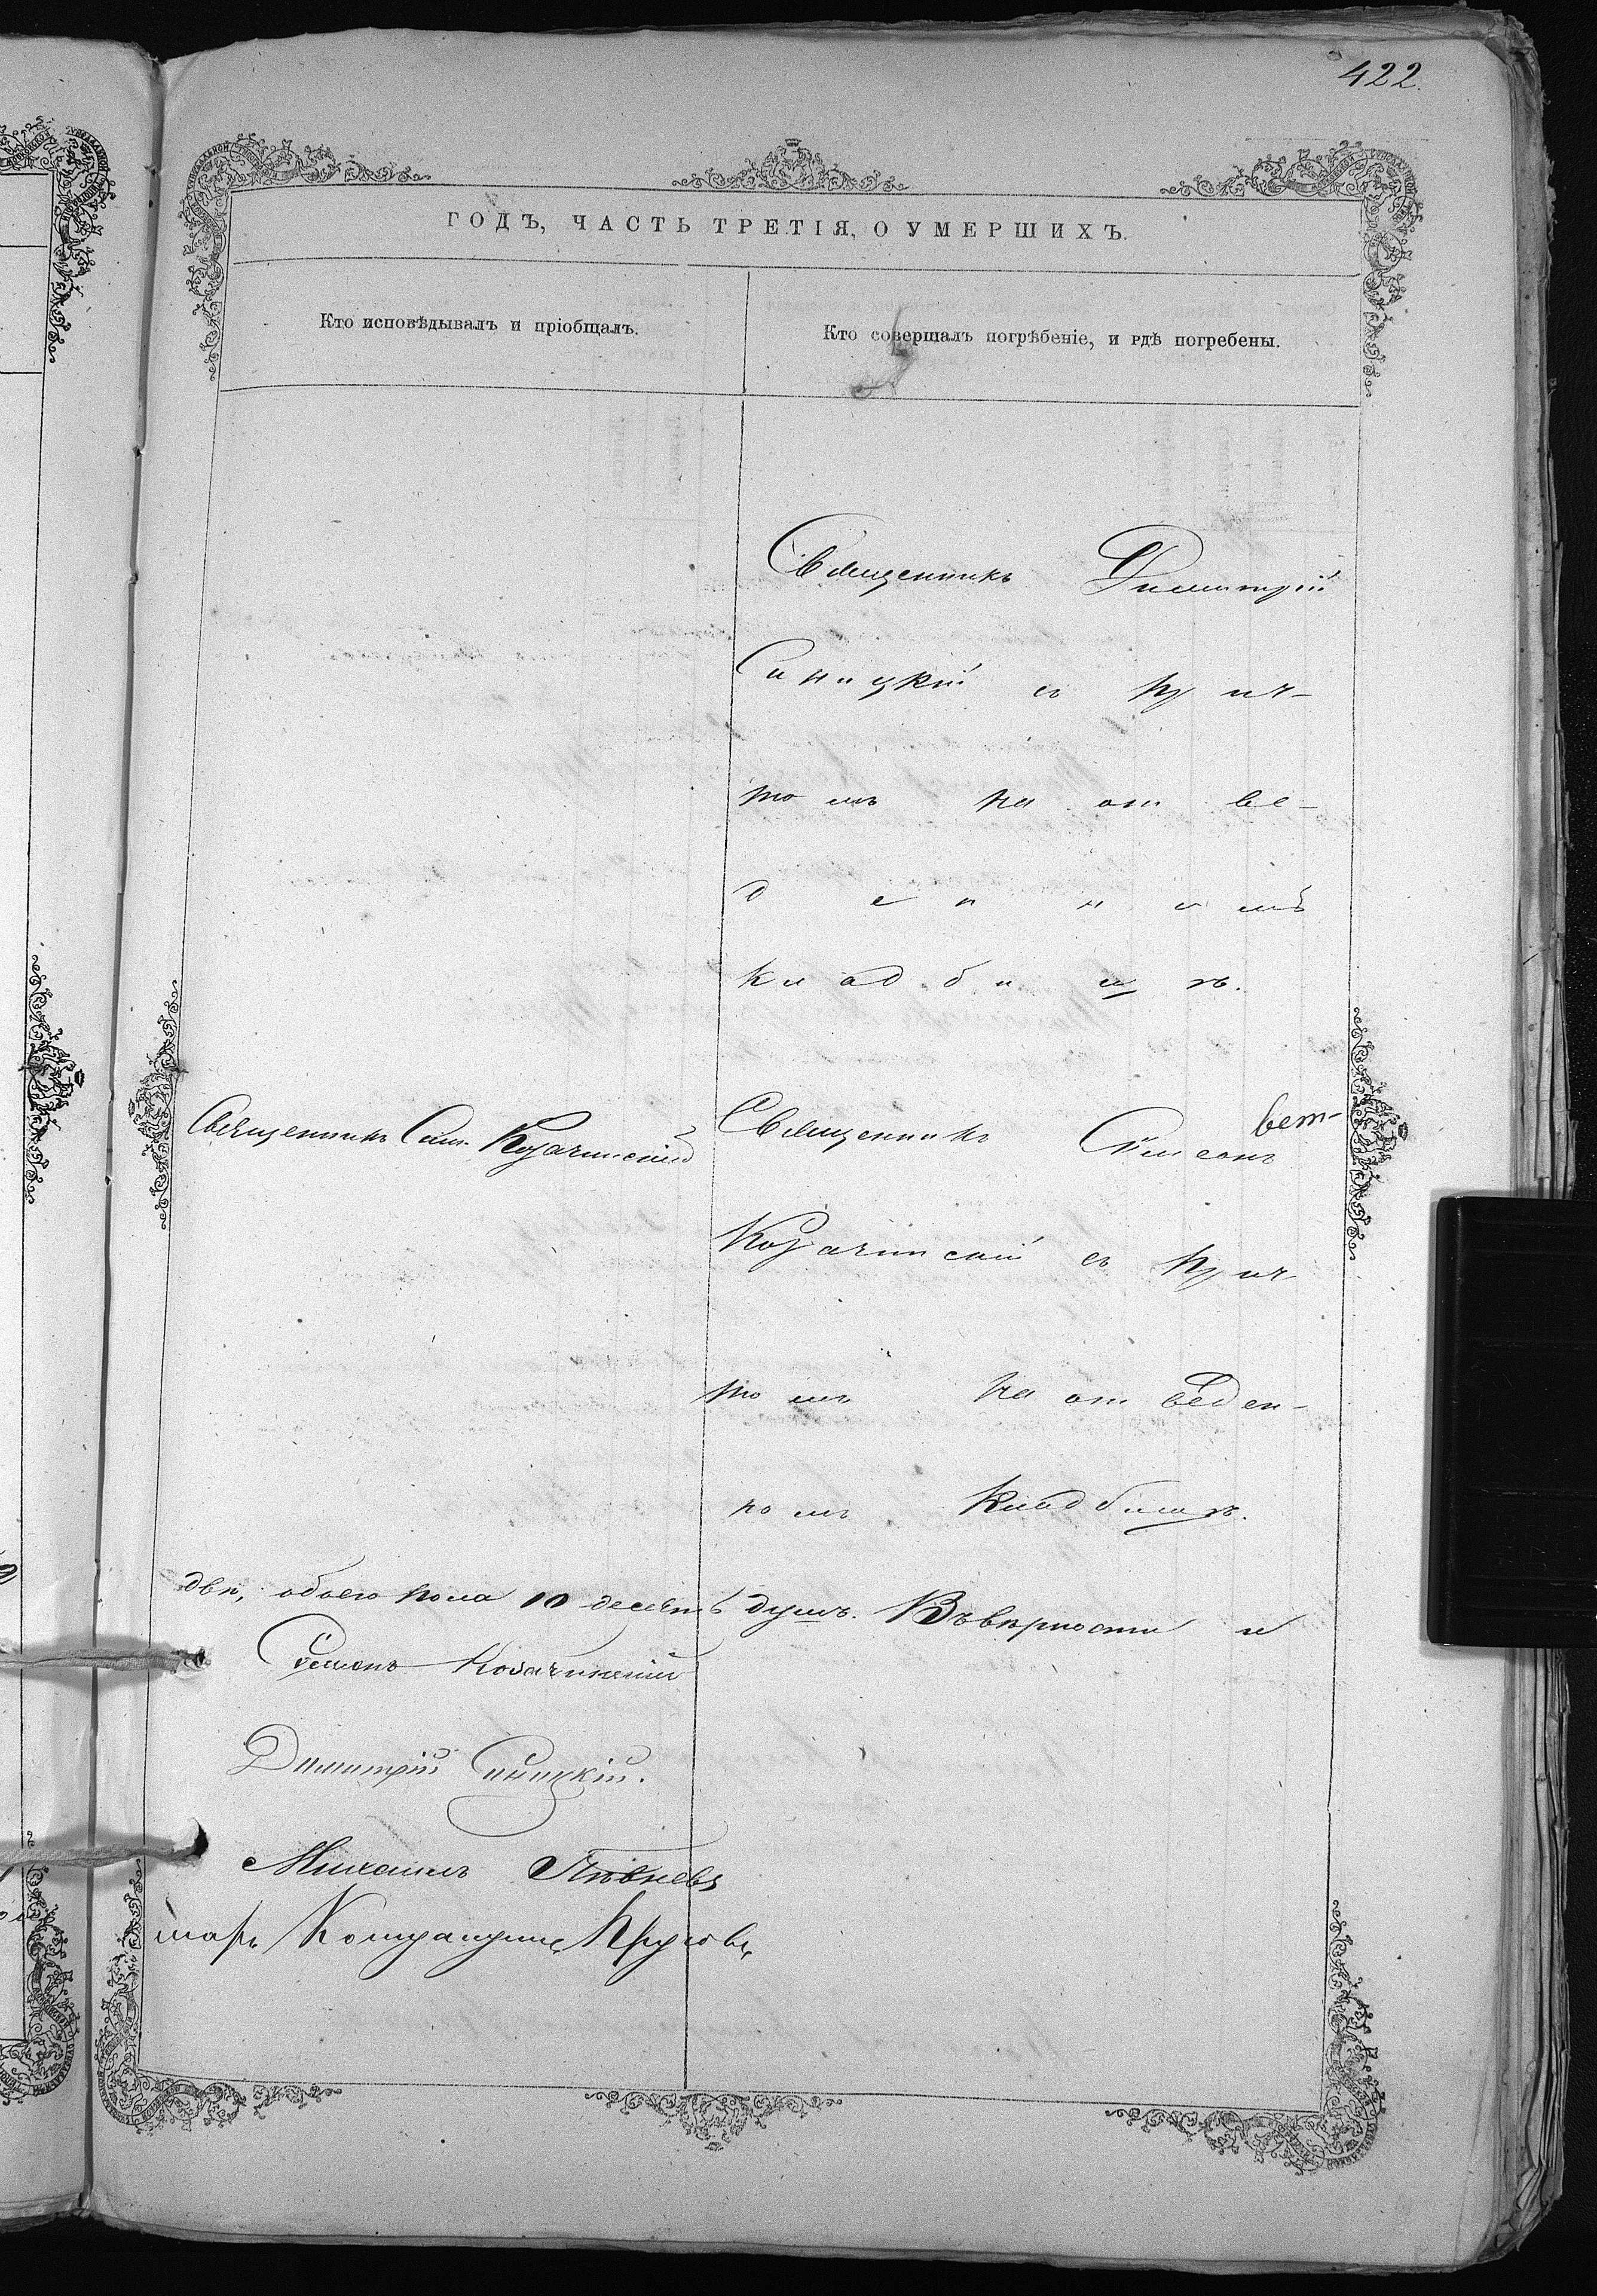 422.
ГОДЪ, ЧАСТЬ ТРЕТІЯ, О УМЕРШИХЪ.
Кто исповѣдывалъ и пріобщалъ.
Кто совершалъ погрѣбеніе, и гдѣ погребены.
Священникъ Димитрій
Синицкій съ прич-
томъ на отве-
денномъ
кладбищѣ.
Священникъ Сим. Козачинскій
Священникъ Симеонъ
Козачинскій съ прич
томъ на отведен-
номъ Кладбищѣ.
двѣ, обоего пола 10 десять душъ. Въ вѣрности и
Симеонъ Козачинскій
Димитрій Синицкій.
Михаилъ